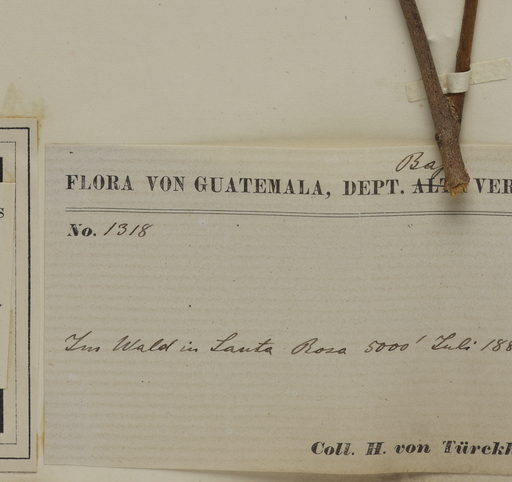 Baj
FLORA VON GUATEMALA, DEPT. ALTA VER
No. 1318
Im Wald in Santa Rosa 5000' Juli 188
Coll. H. von Türckh
S